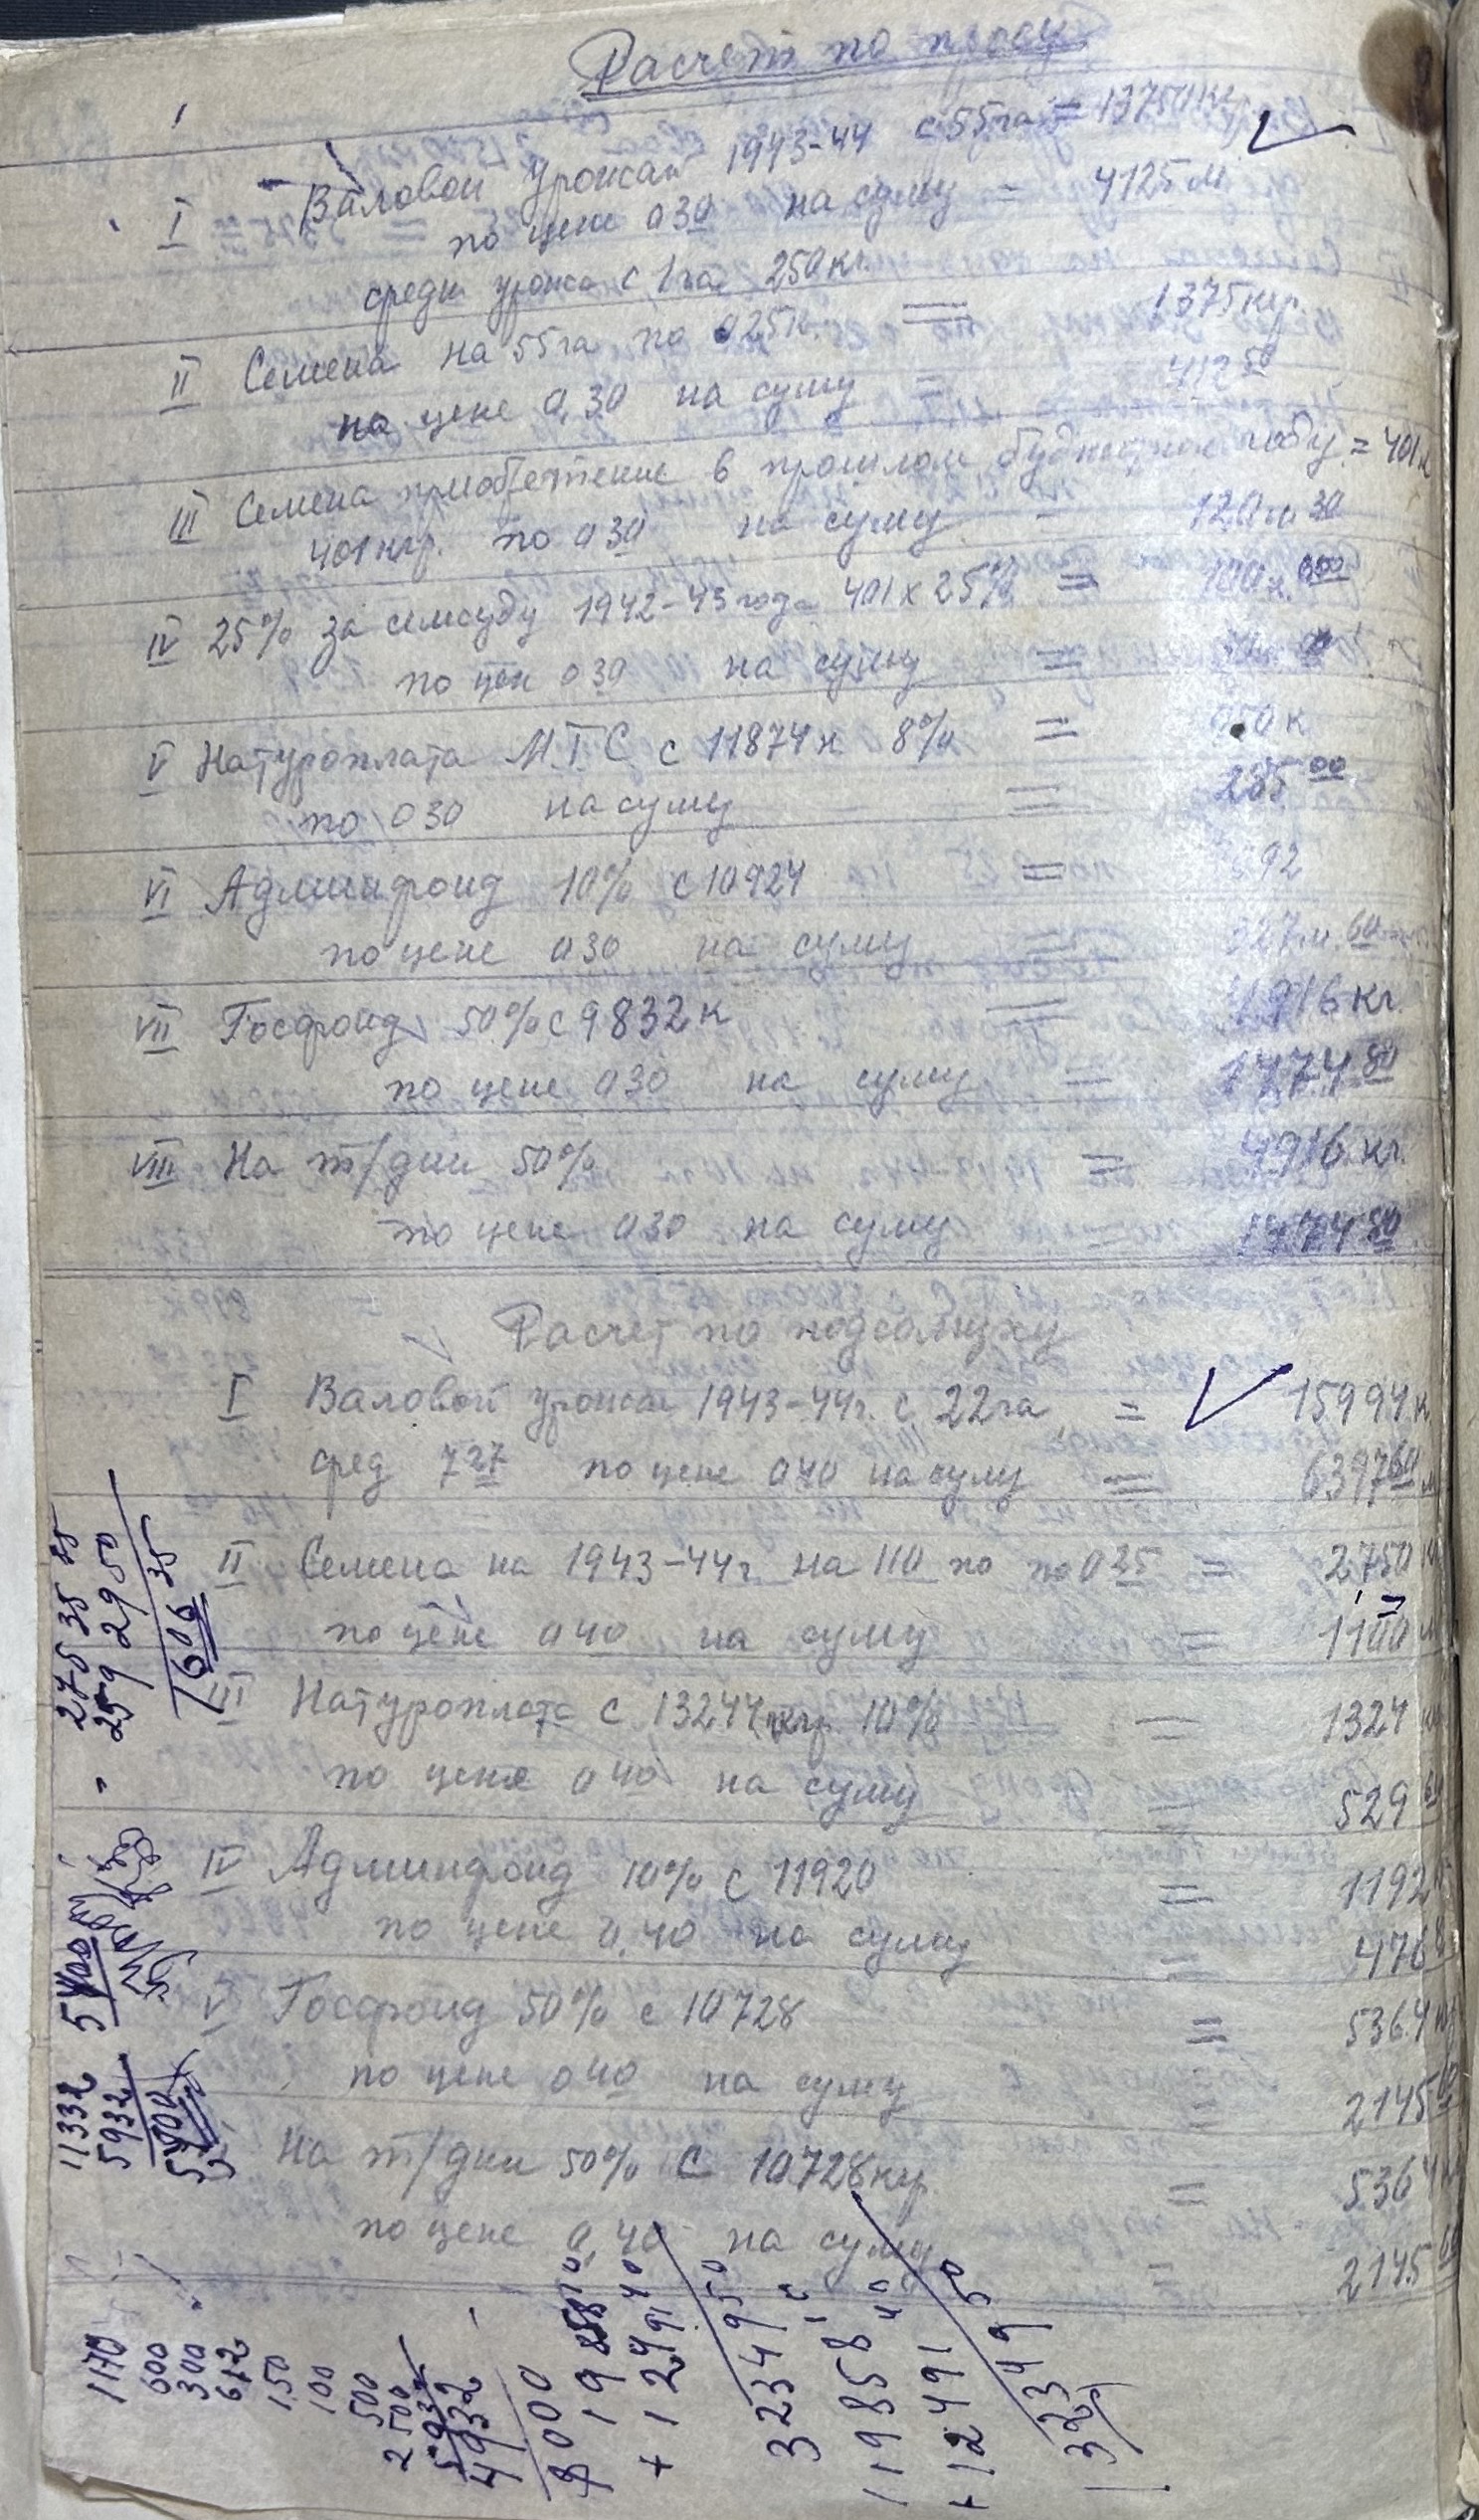 Расчет по просу
I Валовой урожай 1943-44 с 55га = 13750кг
по цене 0 30 на суму = 4125 м
средн урожа с 1 га 250кг.
II Семена на 55га по 025к = 1375кгр.
по цене 0,30 на суму = 412 50
III Семена приобретение в прошлом буджетном году = 401к
401кгр. по 0 30 на суму - 120 м 30
IV 25% за семсуду 1942-43 года 401 х 25% = 100к
по цен 0 30 на суму =
V Натуроплата М.Т.С с 11874к 8% = 950к
по 0 30 на суму = 285 00
VI Админфонд 10% с 10924 = 1092
по цене 0 30 на суму = 327м. 60
VII Госфонд 50% с 9832к = 4916кг.
по цене 0 30 на суму = 1474 80
VIII На т/дни 50% = 4916 кг.
по цене 0 30 на суму 1474 80
Расчет по подсолнуху
I Валовой урожай 1943-44г. с 22га = 15994к
сред 7 27 по цене 0 40 на суму = 6397 60 м
II Семена на 1943-44г на 110 по по 0 25 = 2750 кг
по цене 0 40 на суму = 1100 м
III Натуроплата с 13244 кгр. 10% = 1324 кг
по цене 0 40 на суму = 529 60
IV Админфонд 10% с 11920 = 1192
по цене 0,40 на суму = 476 8
V Госфонд 50% с 10728 = 5364 кг
по цене 0 40 на суму = 2145 60
На т/дни 50% с 10728кгр. = 5364к
по цене 0,40 на суму = 2145 60
275 35 85
259 29 50
1606 35
5400
11332
5932
5400
1170
600
300
612
150
100
500
2500
5932
4932
+ 12491 40
32349 50
11985 8 10
+ 12491 40